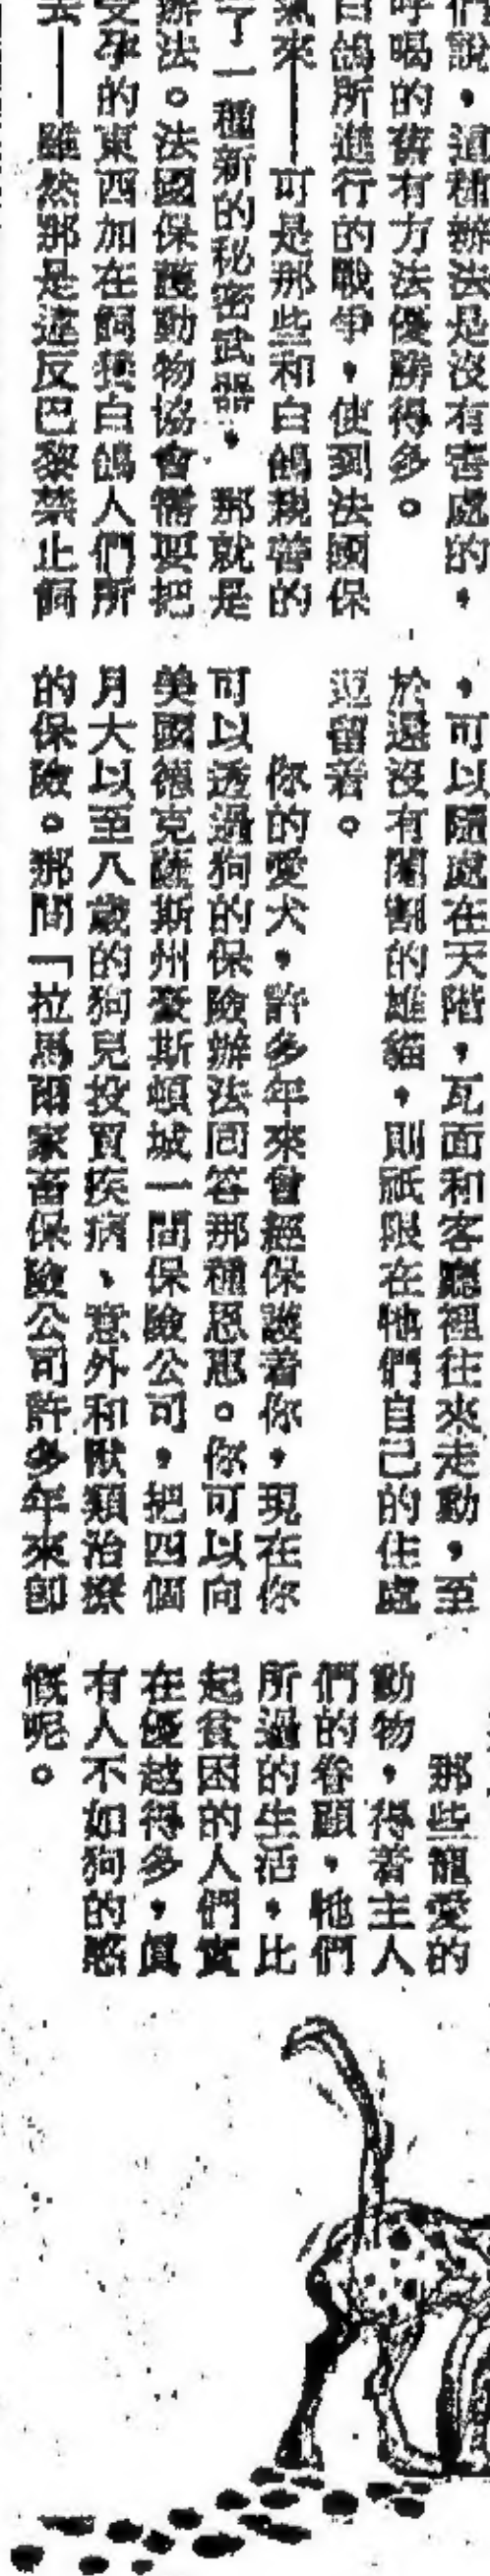 們說，這種辦法是沒有害處的，
呼喝的舊有方法優勝得多。
白鴿所進行的戰爭，使到法國保
氣來——可是那些和白鴿親善的
了一種新的秘密武器，那就是
辦法。法國保護動物協會需要把
受孕的東西加在飼養白鴿人們所
去——雖然那是違反巴黎禁止飼
，可以隨處在天階，瓦面和客廳裡往來走動，至
於還沒有閹割的雄貓，則祇限在牠們自己的住處
逗留着。
你的愛犬，許多年來曾經保護着你，現在你
可以透過狗的保險辦法回答那種恩惠。你可以向
美國德克薩斯州豪斯頓城一間保險公司，把四個
月大以至八歲的狗兒投買疾病、意外和獸類治療
的保險。那間「拉馬爾家畜保險公司許多年來卽
那些寵愛的
動物，得着主人
們的眷顧，牠們
所過的生活，比
起貧困的人們實
在優越得多，眞
有人不如狗的感
慨呢。